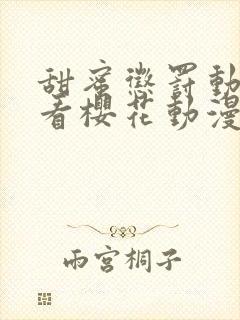 甜蜜懲罰動
看櫻花動漫
雨宮桐子